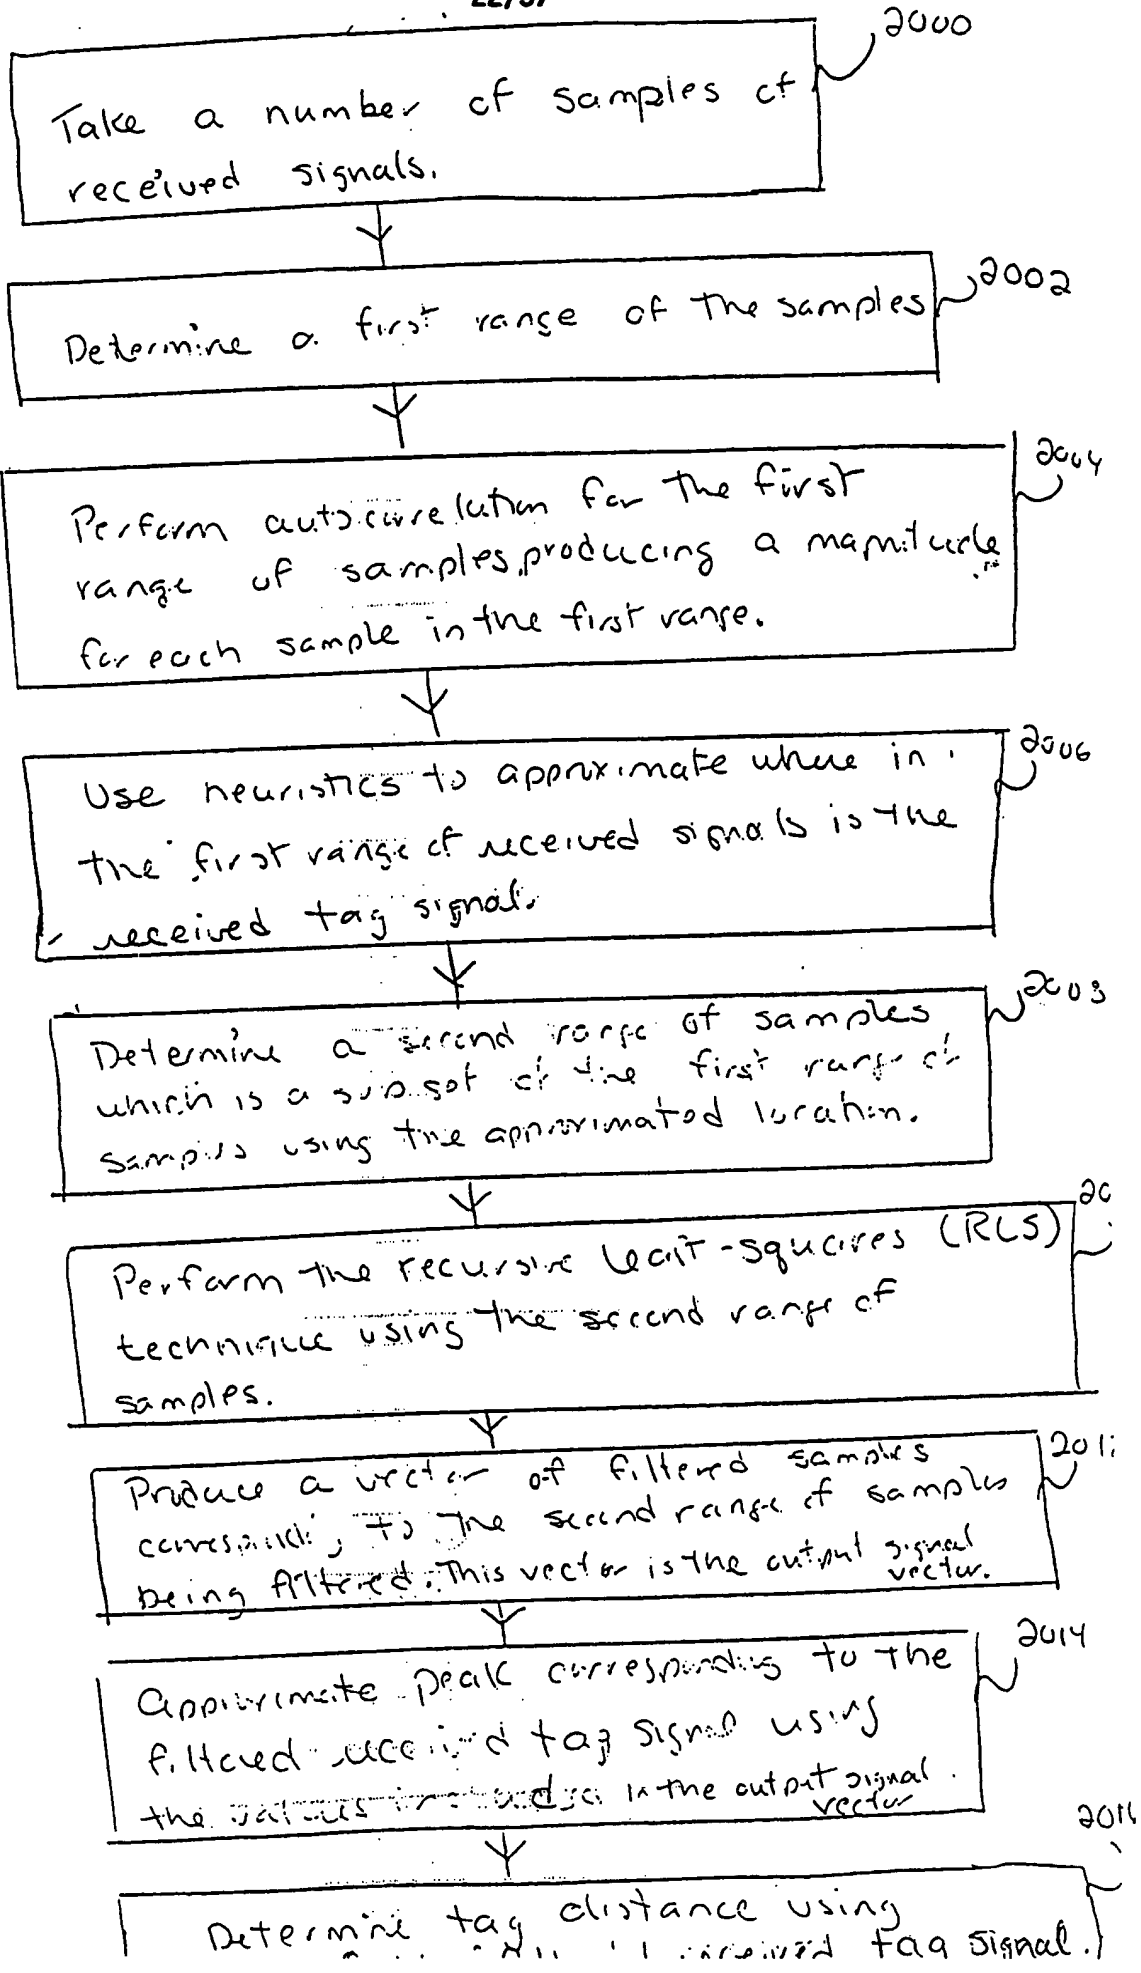 2000
Take a number of samples of
received signals.
2002
Determine a first range of the samples
2004
Perform autocorrelation for the first
range of samples, producing a magnitude
for each sample in the first range.
2006
Use heuristics to approximate where in
the first range of received signals is the
received tag signal.
2008
Determine a second range of samples
which is a subset of the first range of
samples using the approximated location.
Perform the recursive least-squares (RLS)
technique using the second range of
samples.
Produce a vector of filtered samples
corresponding to the second range of samples
being filtered. This vector is the output signal
vector.
2014
Approximate peak corresponding to the
filtered received tag signal using
the values in the output signal
vector
2016
Determine tag distance using
received tag signal.